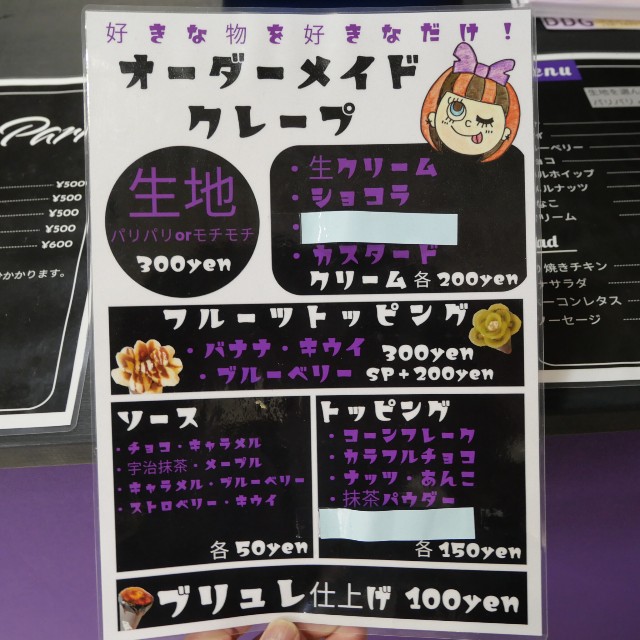 好きな物を好きなだけ!
オーダーメイド
クレープ
生地
パリパリorモチモチ
300yen
・生クリーム
・ショコラ
・
・カスタード
クリーム各200yen
フルーツトッピング
・バナナ・キウイ 300yen
・ブルーベリー SP+200yen
ソース
・チョコ・キャラメル
・宇治抹茶・メープル
・キャラメル・ブルーベリー
・ストロベリー・キウイ
各50yen
トッピング
・コーンフレーク
・カラフルチョコ
・ナッツ・あんこ
・抹茶パウダー
各150yen
ブリュレ仕上げ 100yen
¥500
¥500
¥500
¥500
¥600
かかります。
DDG
enu
生地を選ん
パリパリ
ベリー
ョコ
ルホイップ
ルナッツ
なこ
リーム
ad
焼きチキン
ーサラダ
ーコンレタス
ーセージ